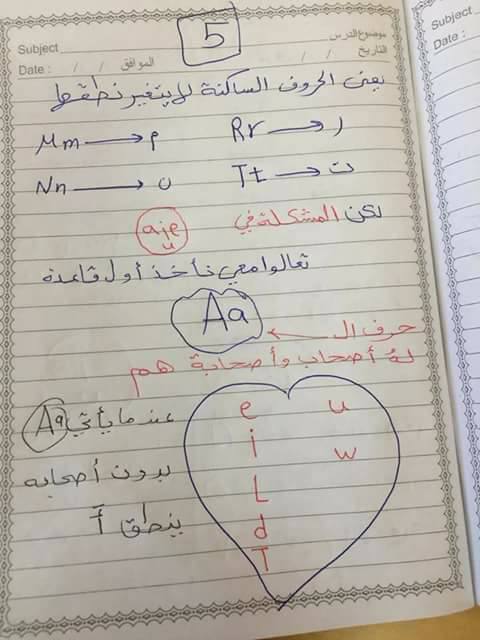 5
Subject موضوع الدرس
Date : / / الموافق / / التاريخ
بعض الحروف الساكنة لا يتغير نطقها
Mm → م Rr → ر
Nn → ن Tt → ت
لكن المشكلة في
تعالوا معي نأخذ أول قاعدة
Aa
حرف ال ←
له أصحاب وأصحابة هم
e u
i w
L
d
T
عندما يأتي Aa
بدون أصحابه
ينطق أَ
Subject
Date :